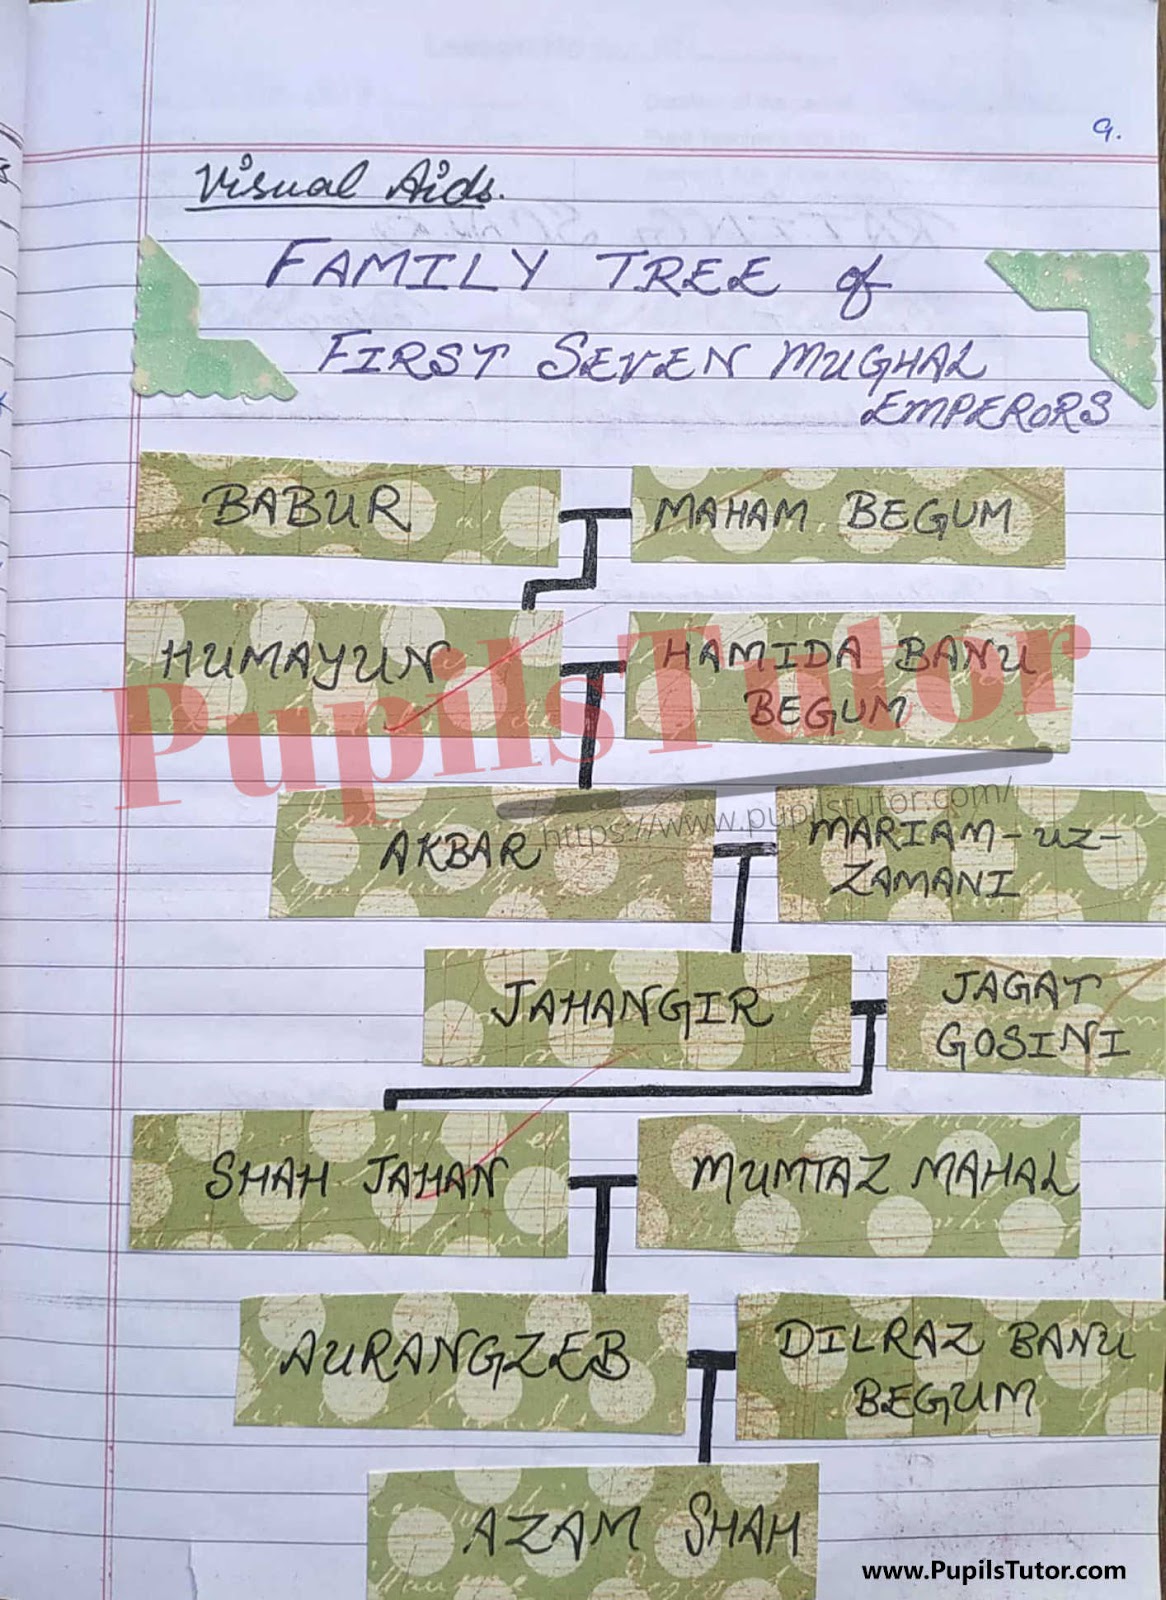 9.
Visual Aids.
FAMILY TREE of
FIRST SEVEN MUGHAL
EMPERORS
BABUR MAHAM BEGUM
HUMAYUN HAMIDA BANU
BEGUM
PupilsTutor
https://www.pupilstutor.com/
AKBAR MARIAM-UZ-
ZAMANI
JAHANGIR JAGAT
GOSINI
SHAH JAHAN MUMTAZ MAHAL
AURANGZEB DILRAZ BANU
BEGUM
AZAM SHAH
www.PupilsTutor.com